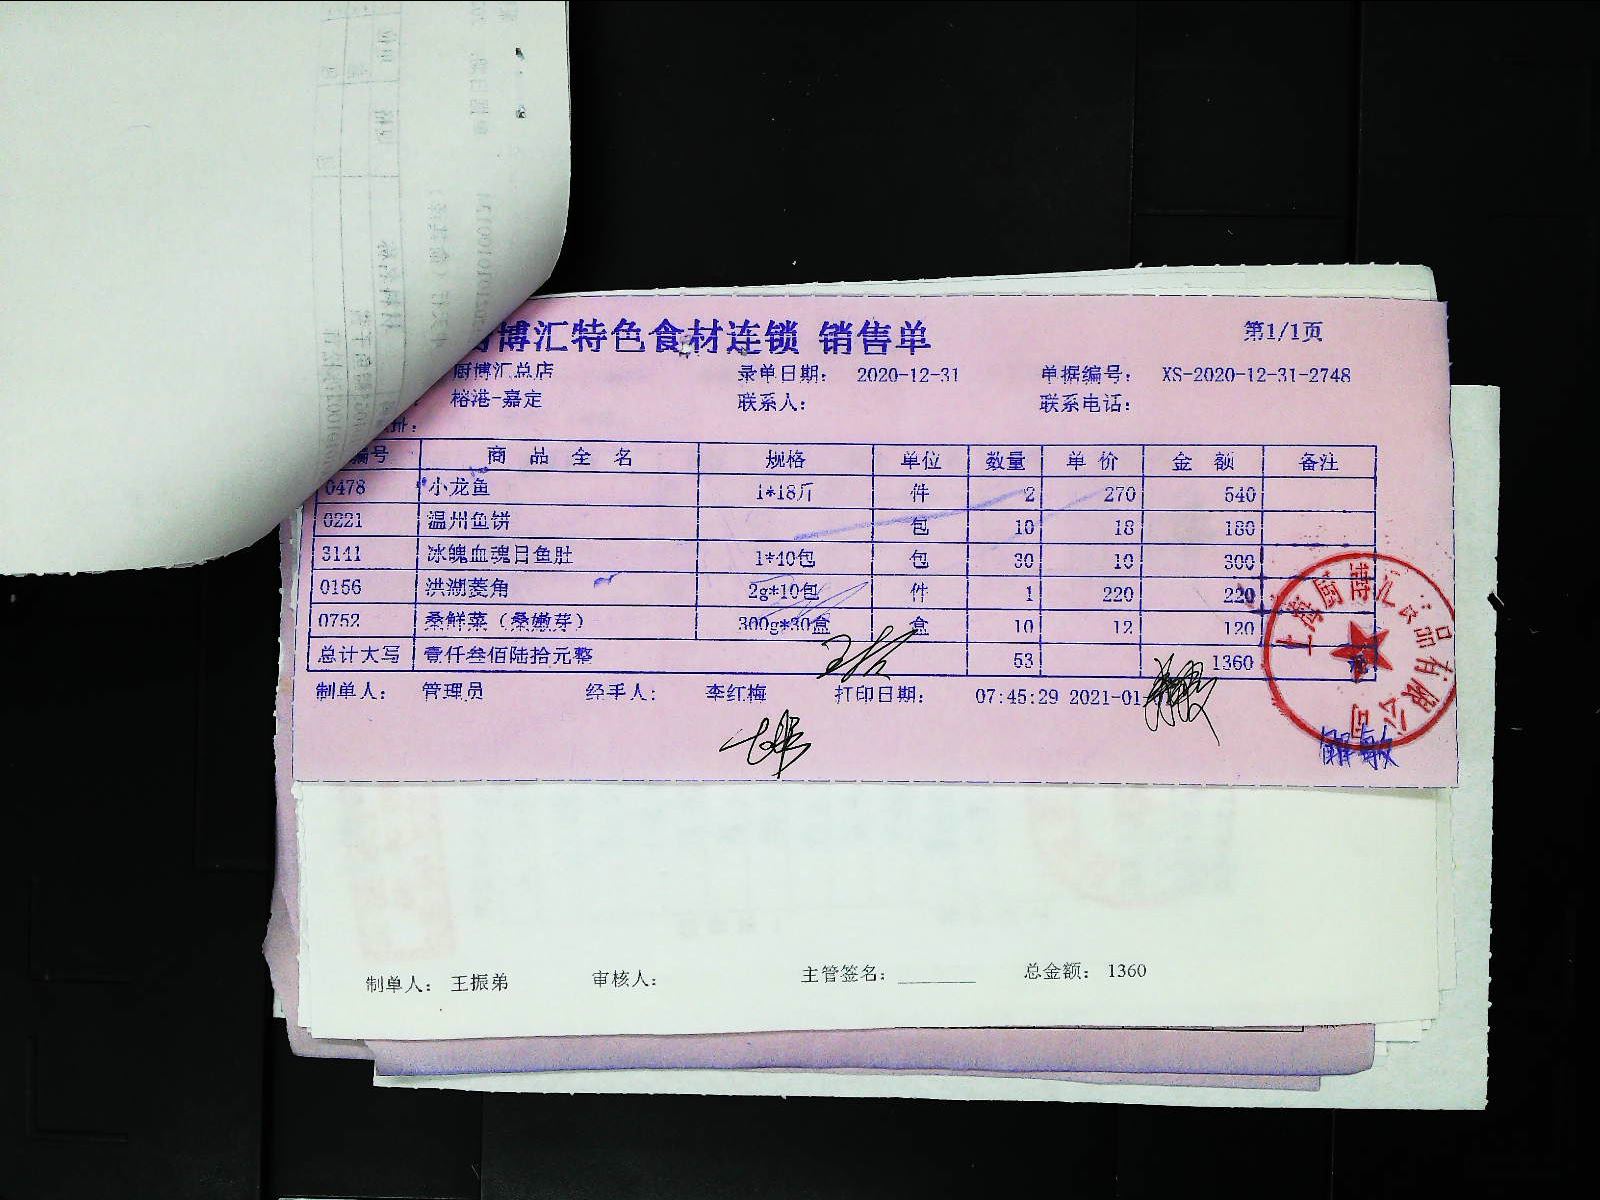 博汇特色食材连锁 销售单
第1/1页
厨博汇总店 录单日期: 2020-12-31 单据编号: XS-2020-12-31-2748
榕港-嘉定 联系人: 联系电话:
址:
编号 商品全名 规格 单位 数量 单价 金额 备注
0478 小龙鱼 1*18斤 件 2 270 540
0221 温州鱼饼 包 10 18 180
3141 冰魄血魂目鱼肚 1*40包 包 30 10 300
0156 洪湖菱角 2g*10包 件 1 220 220
0752 桑鲜菜（桑嫩芽） 300g*30盒 盒 10 12 120
总计大写 壹仟叁佰陆拾元整 53 1360
制单人: 管理员 经手人: 李红梅 打印日期: 07:45:29 2021-01-
上海厨博汇食品有限公司
解敏
制单人: 王振弟 审核人: 主管签名: 总金额: 1360